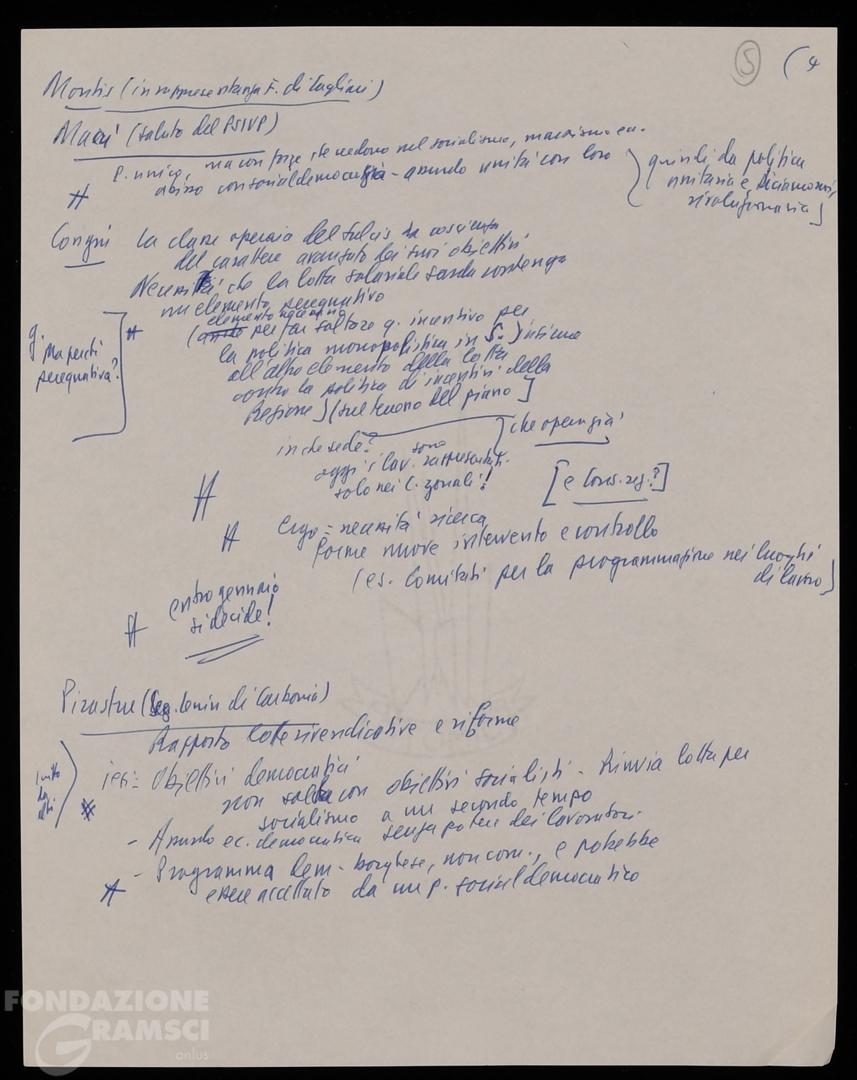 5 (4
Montis (in rappresentanza F. di Cagliari)
(saluto del PSIUP)
P. unico, ma con forze che vedono nel socialismo, marxismo ecc.
con socialdemocrazia - avendo unità con loro
quindi da politica
unitaria e, diciamo,
rivoluzionaria]
Congiu La classe operaia del Sulcis ha coscienza
del carattere avanzato dei suoi obiettivi
Necessità che la lotta salariale sarda contenga
un elemento perequativo
elemento
(per far saltare q. incentivo per
la politica monopolistica in S.) insieme
all'altro elemento della lotta
contro la politica di incentivi della
Regione] (sul terreno del piano]
ma perché
perequativa?
in che sede? che opera già
oggi i lav. sono rappresentati
solo nei C. zonali!
[e Cons. reg.?]
ergo = necessità ricerca
forme nuove intervento e controllo
(es. Comitati per la programmazione nei luoghi
di lavoro]
entro gennaio
si decide!
Pirastru (seg. Lenin di Carbonia)
Rapporto lotte rivendicative e riforme
tesi: Obiettivi democratici
non salda con obiettivi socialisti - Rinvia lotta per
socialismo a un secondo tempo
- Assurdo ec. democratica senza potere dei lavoratori.
- Programma dem-borghese, non com., e potrebbe
essere accettato da un p. socialdemocratico
FONDAZIONE
GRAMSCI
onlus